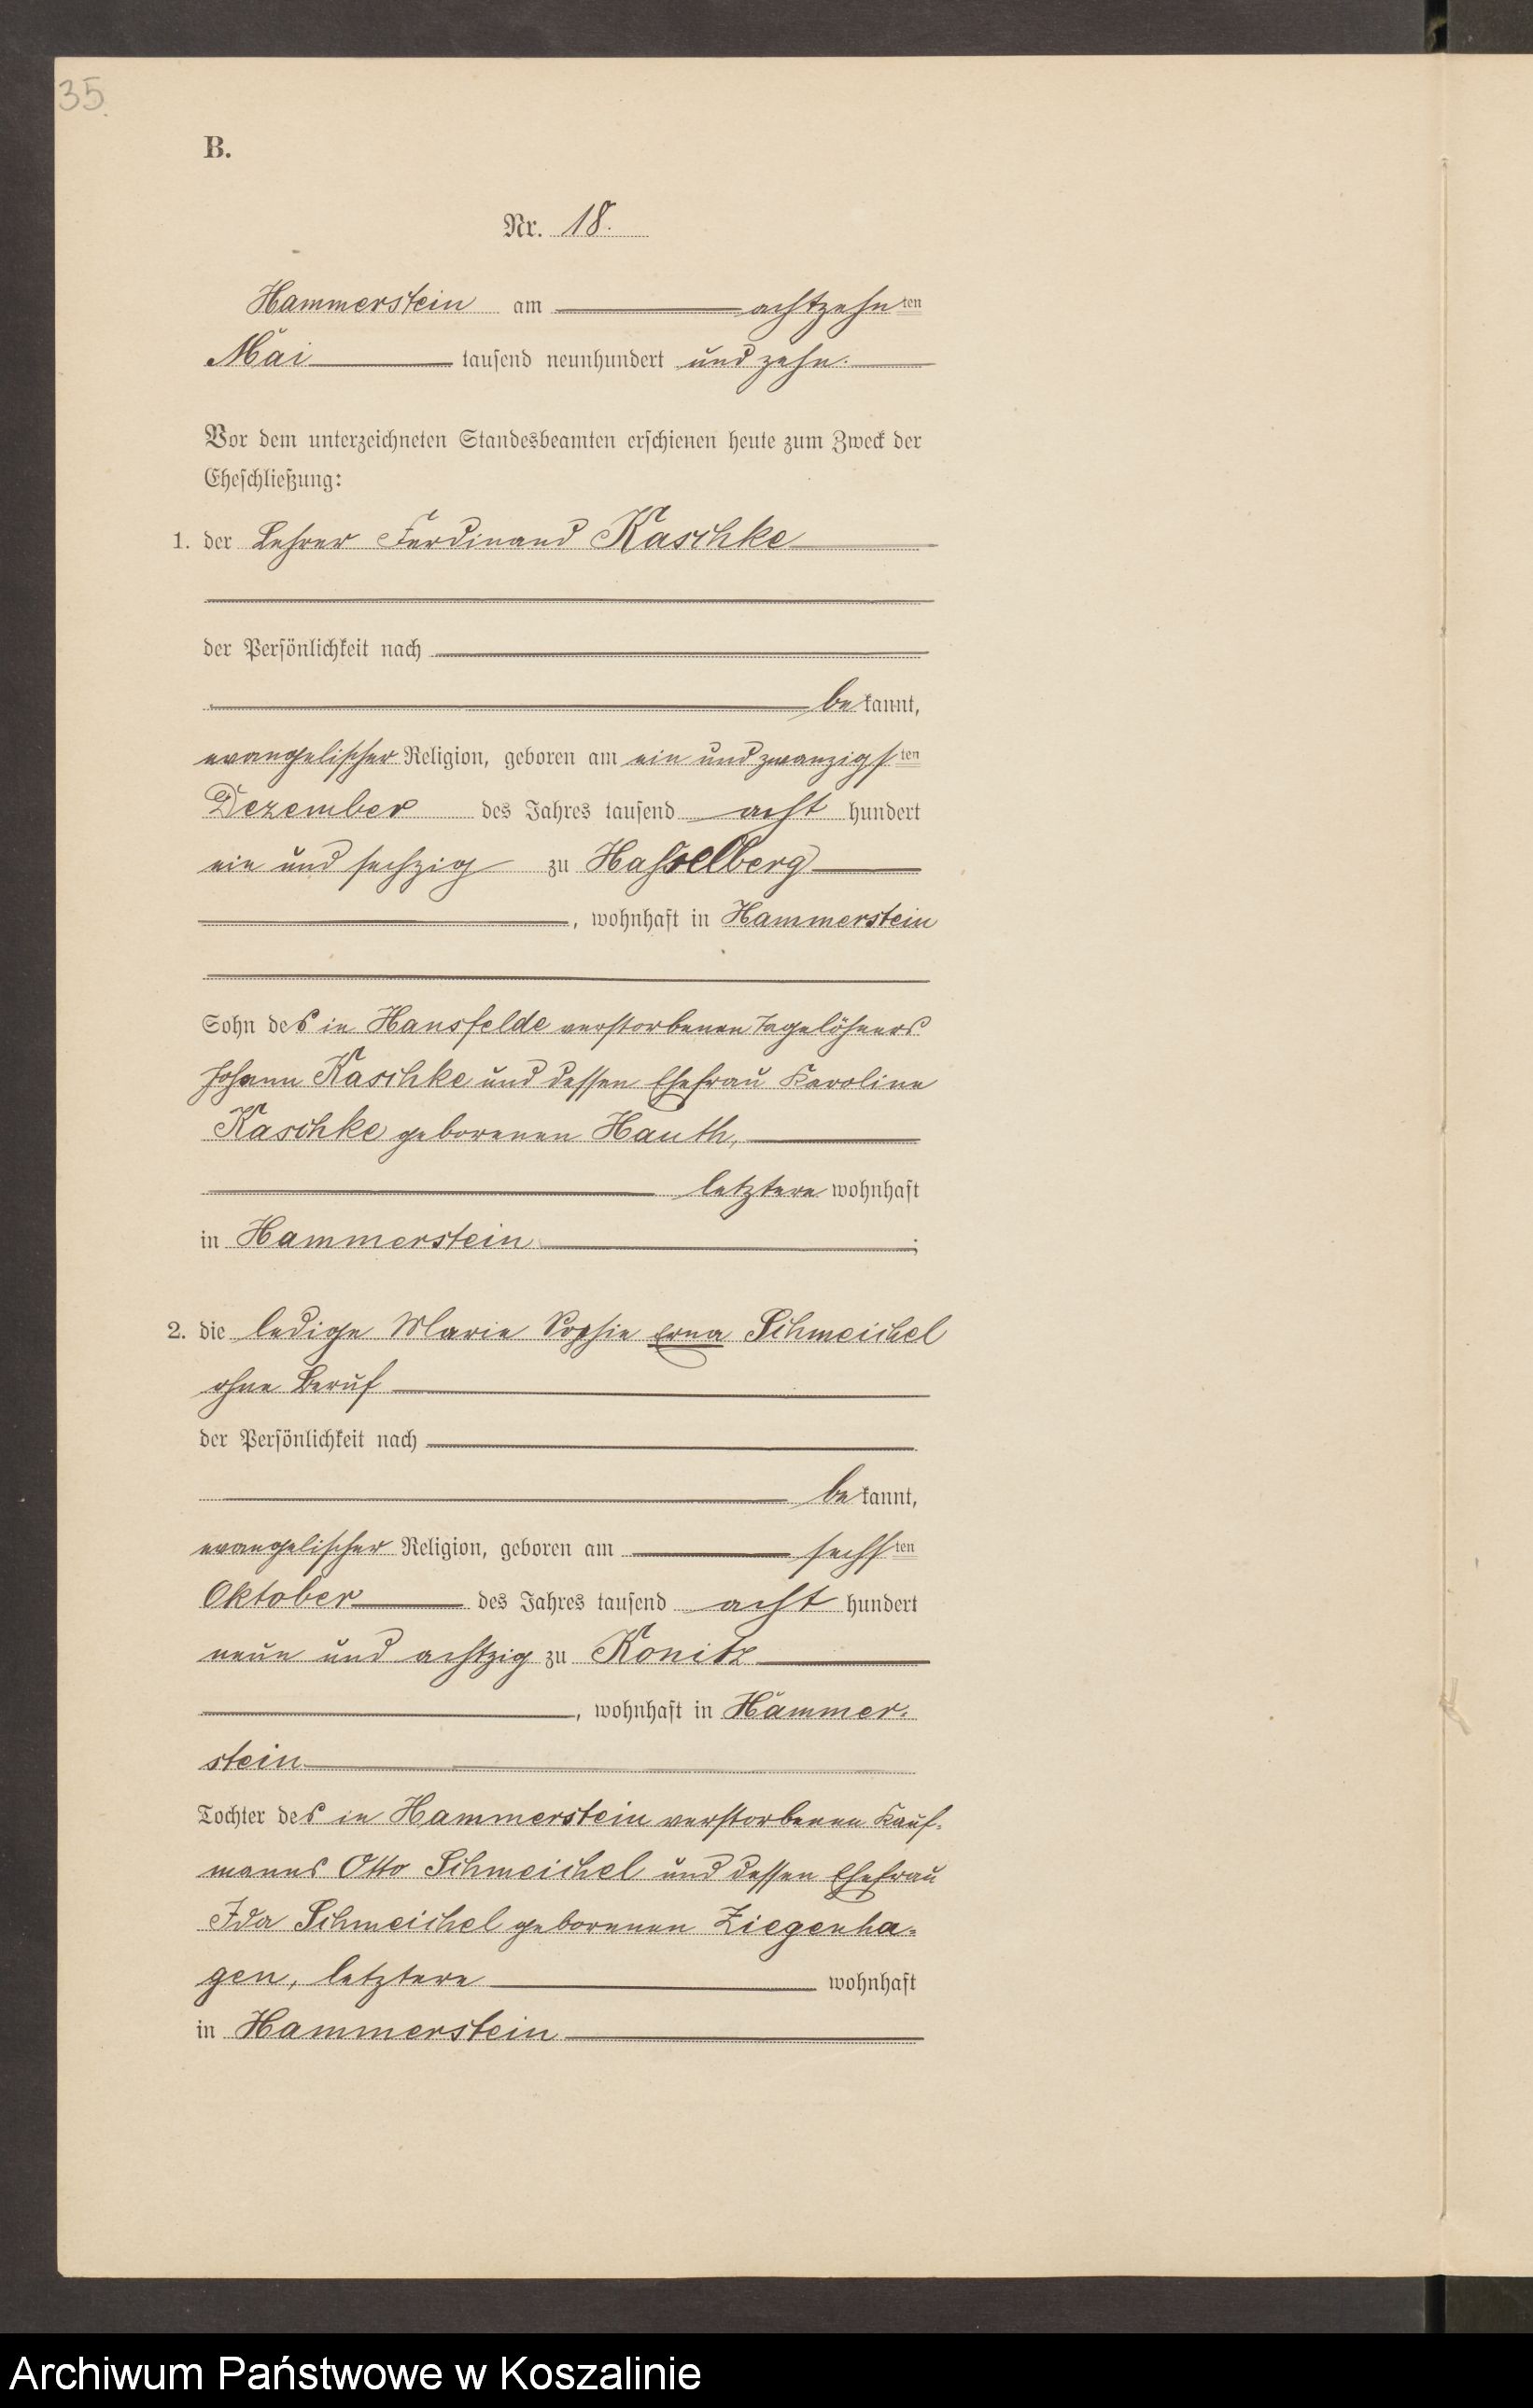 35
B.
Nr. 18.
Hammerstein am achtzehnten
Mai tausend neunhundert und zehn.
Vor dem unterzeichneten Standesbeamten erschienen heute zum Zweck der
Eheschließung:
1. der Lehrer Ferdinand Kaschke
der Persönlichkeit nach
bekannt,
evangelischer Religion, geboren am ein und zwanzigsten
Dezember des Jahres tausend acht hundert
ein und sechzig zu Hasselberg
, wohnhaft in Hammerstein
Sohn des in Hansfelde verstorbenen Tagelöhners
Johann Kaschke und dessen Ehefrau Karoline
Kaschke geborenen Hauth,
letztere wohnhaft
in Hammerstein ;
2. die ledige Marie Sophie Erna Schmeichel
ohne Beruf
der Persönlichkeit nach
bekannt,
evangelischer Religion, geboren am sechsten
Oktober des Jahres tausend acht hundert
neun und achtzig zu Konitz
, wohnhaft in Hammer-
stein
Tochter des in Hammerstein verstorbenen Kauf-
manns Otto Schmeichel und dessen Ehefrau
Ida Schmeichel geborenen Ziegenha-
gen, letztere wohnhaft
in Hammerstein
Archiwum Państwowe w Koszalinie